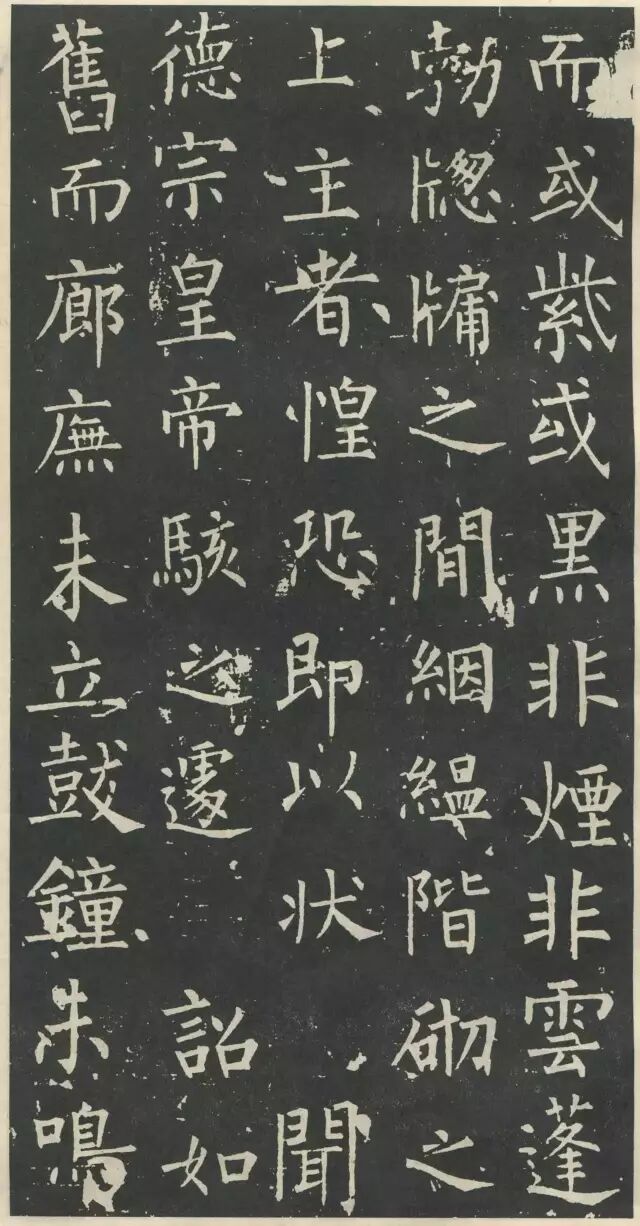 而或紫或黑非煙非雲蓬
勃牕牖之間絪縕階砌之
上主者惶恐即以状聞
德宗皇帝駭之遽詔如
舊而廊廡未立鼓鐘未鳴